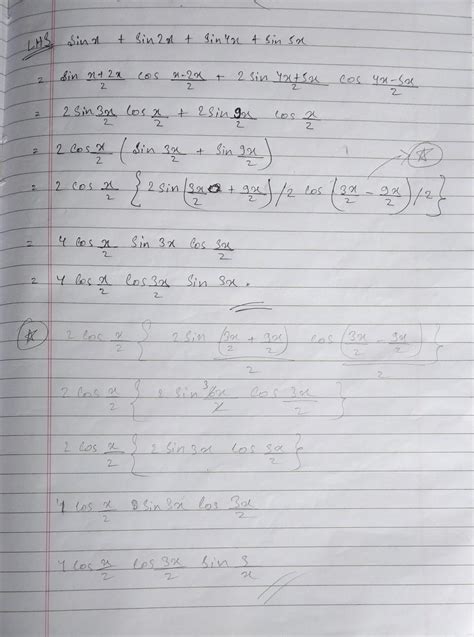 LHS sin x + sin 2x + sin 4x + sin 5x
= sin (x+2x)/2 cos (x-2x)/2 + 2 sin (4x+5x)/2 cos (4x-5x)/2
= 2 sin 3x/2 cos x/2 + 2 sin 9x/2 cos x/2
= 2 cos x/2 ( sin 3x/2 + sin 9x/2 )
= 2 cos x/2 { 2 sin (3x/2 + 9x/2)/2 cos (3x/2 - 9x/2)/2 }
= 4 cos x/2 sin 3x cos 3x/2
= 4 cos x/2 cos 3x/2 sin 3x.
2 cos x/2 { 2 sin (3x/2 + 9x/2)/2 cos (3x/2 - 9x/2)/2 }
2 cos x/2 { 2 sin 6x/2 cos 3x/2 }
2 cos x/2 { 2 sin 3x cos 3x/2 }
4 cos x/2 sin 3x cos 3x/2
4 cos x/2 cos 3x/2 sin 3/x